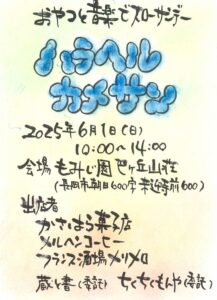 おやつと音楽でスローサンデー
ハラヘル
カメサン
2025年6月1日(日)
10:00〜14:00
会場 もみじ園 巴ヶ丘山荘
(長岡市朝日600字
出店者
かさはら菓子店
メルヘンコーヒー
フランス酒場メリメロ
蔵ト書(委託) ちくちくもんや(委託)